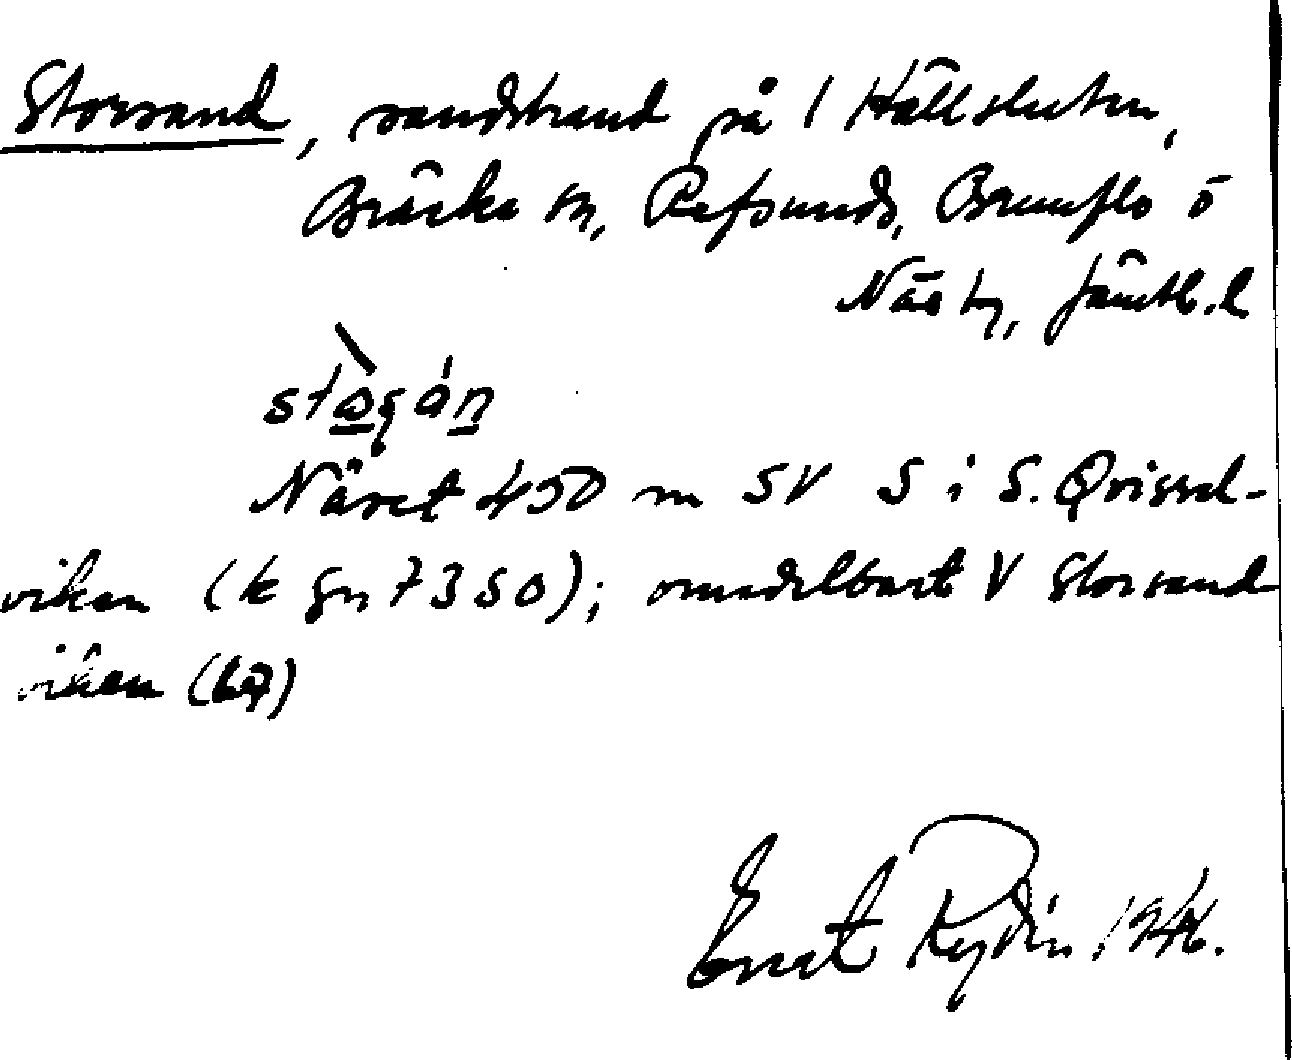 Storsand, sandstrand på 1 Hällsluten,
Bräcke sn, Refsunds, Brunflo o
Näs tg, Jämtl. l
Näset 450 m SV S i S. Qvissel-
viken (k gn 7350); omedelbart V Storsand
viken (67)
Ernst Rydin 1946.